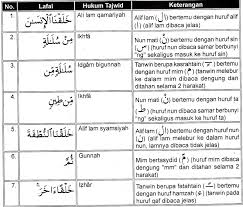 No. Lafal Hukum Tajwid Keterangan
1. خَلَقْنَا الْإِنْسَانَ Alif lam qamariyah Alif lam (ال) bertemu dengan huruf alif (ا) (alif lam dibaca jelas)
2. مِنْ سُلَالَةٍ Ikhfā Nun mati (نْ) bertemu dengan huruf sin (س) (huruf nun dibaca samar berbunyi "ng" sekaligus masuk ke huruf sin)
3. سُلَالَةٍ مِنْ Idgām bigunnah Tanwin berupa kasrahtain bertemu dengan huruf mim (م) (tanwin melebur ke dalam mim dibaca dengung dan ditahan selama 2 harakat)
4. مِنْ طِينٍ Ikhfā Nun mati (نْ) bertemu dengan huruf (ط) (huruf nun dibaca samar berbunyi "ng" sekaligus masuk ke huruf
5. خَلَقْنَا النُّطْفَةَ Alif lam syamsiyah Alif lam (ال) bertemu dengan huruf nun (ن) (alif lam dibaca melebur ke huruf nun, lamnya dibaca tidak jelas)
6. Gunnah Mim bertasydid (مّ) (huruf mim dibaca dengan dengung "mm" dan ditahan selama 2 harakat)
7. خَلْقًا آخَرَ Izhār Tanwin berupa fatahtain bertemu dengan huruf hamzah (ء) (tanwin dibaca jelas)